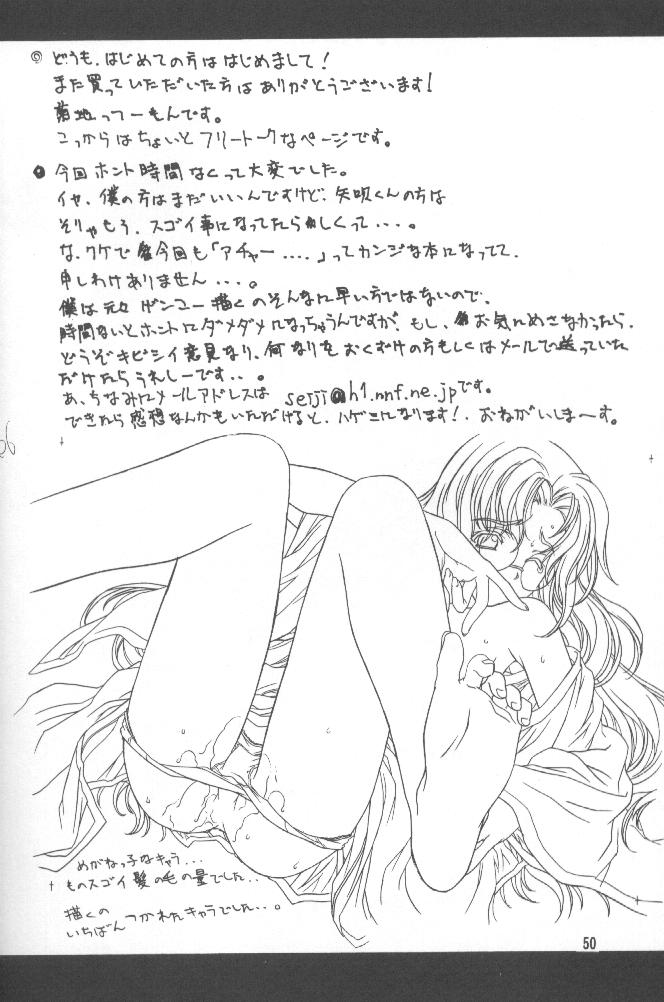 ◎ どうも、はじめての方ははじめまして!
また買っていただいた方はありがとうございます!
菊地ってーもんです。
こっからはちょいとフリートークなページです。
● 今回ホント時間なくって大変でした。
イヤ、僕の方はまだいいんですけど、矢吹くんの方は
そりゃもう、スゴイ事になってたらしくって...。
な、ワケで今回も「アチャー....」ってカンジな本になってて、
申しわけありません...。
僕は元々ゲンコー描くのそんなに早い方ではないので、
時間ないとホントにダメダメになっちゃうんですが、もし、お気にめさなかったら、
どうぞキビシイ意見なり、何なりをおくづけの方もしくはメールで送っていた
だけたらうれしーです..。
あ、ちなみにメールアドレスは seiji@h1.nnf.ne.jpです。
できたら感想なんかもいただけると、ハゲミになります!、おねがいしまーす。
めがねっ子なキャラ...
ものスゴイ髪の毛の量でした..
描くの
いちばんつかれたキャラでした..。
50